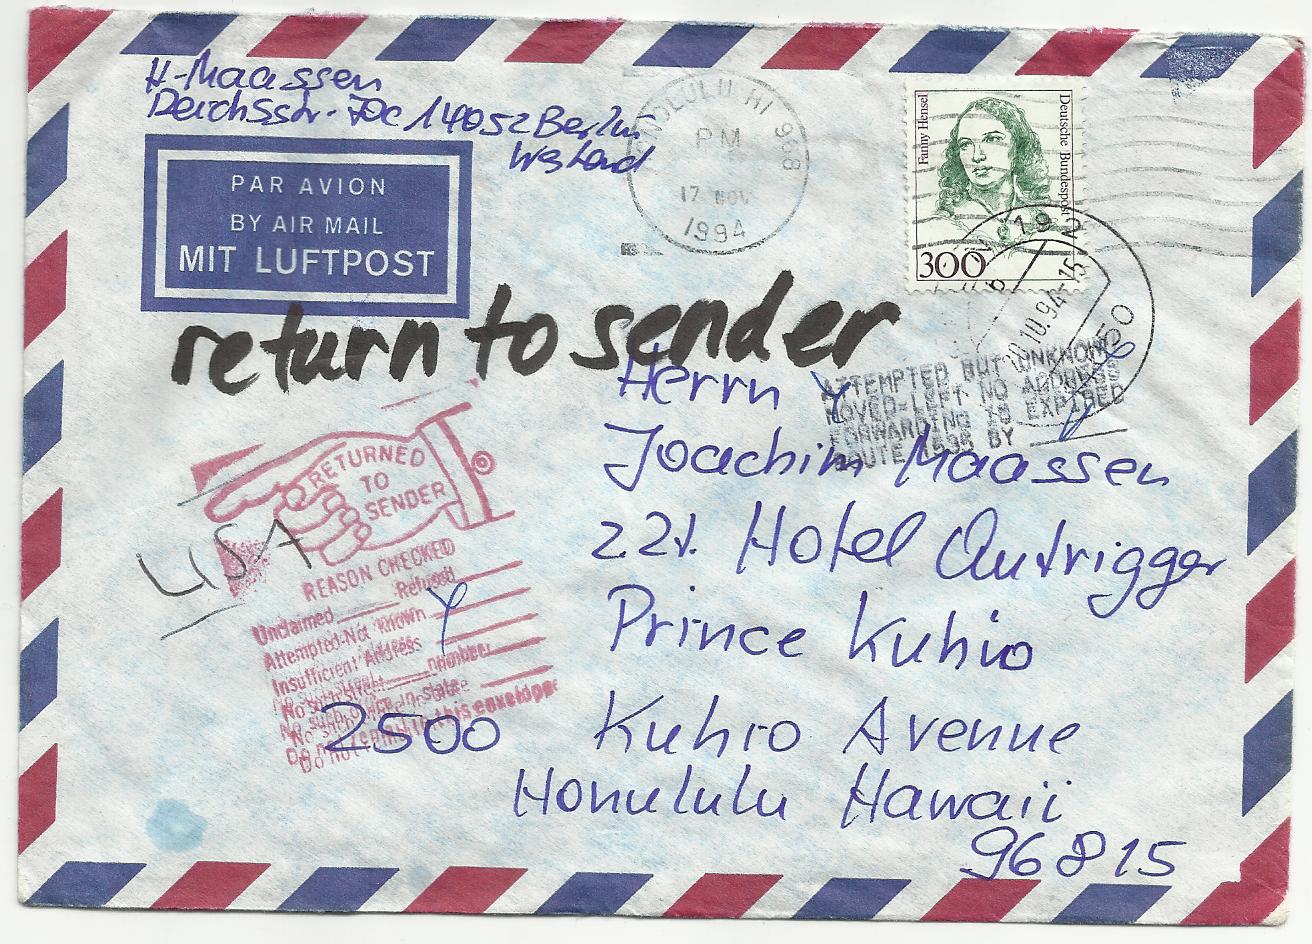 H-Maassen
14052 Berlin
PAR AVION
BY AIR MAIL
MIT LUFTPOST
HONOLULU HI 968
PM
17 NOV
1994
Fanny Hensel
Deutsche Bundespost
300
19
10.94-15
50
return to sender
ATTEMPTED BUT UNKNOWN
MOVED-LEFT NO ADDRESS
FORWARDING IS EXPIRED
ROUTE BY
Herrn
Joachim Maassen
Hotel Outrigger
Prince Kuhio
2500 Kuhio Avenue
Honululu Hawaii
96815
RETURNED
TO
SENDER
LISA
REASON CHECKED
Unclaimed Refused
Attempted-Not known
Insufficient Address
No such street number
No such office in state
Do not remail in this envelope